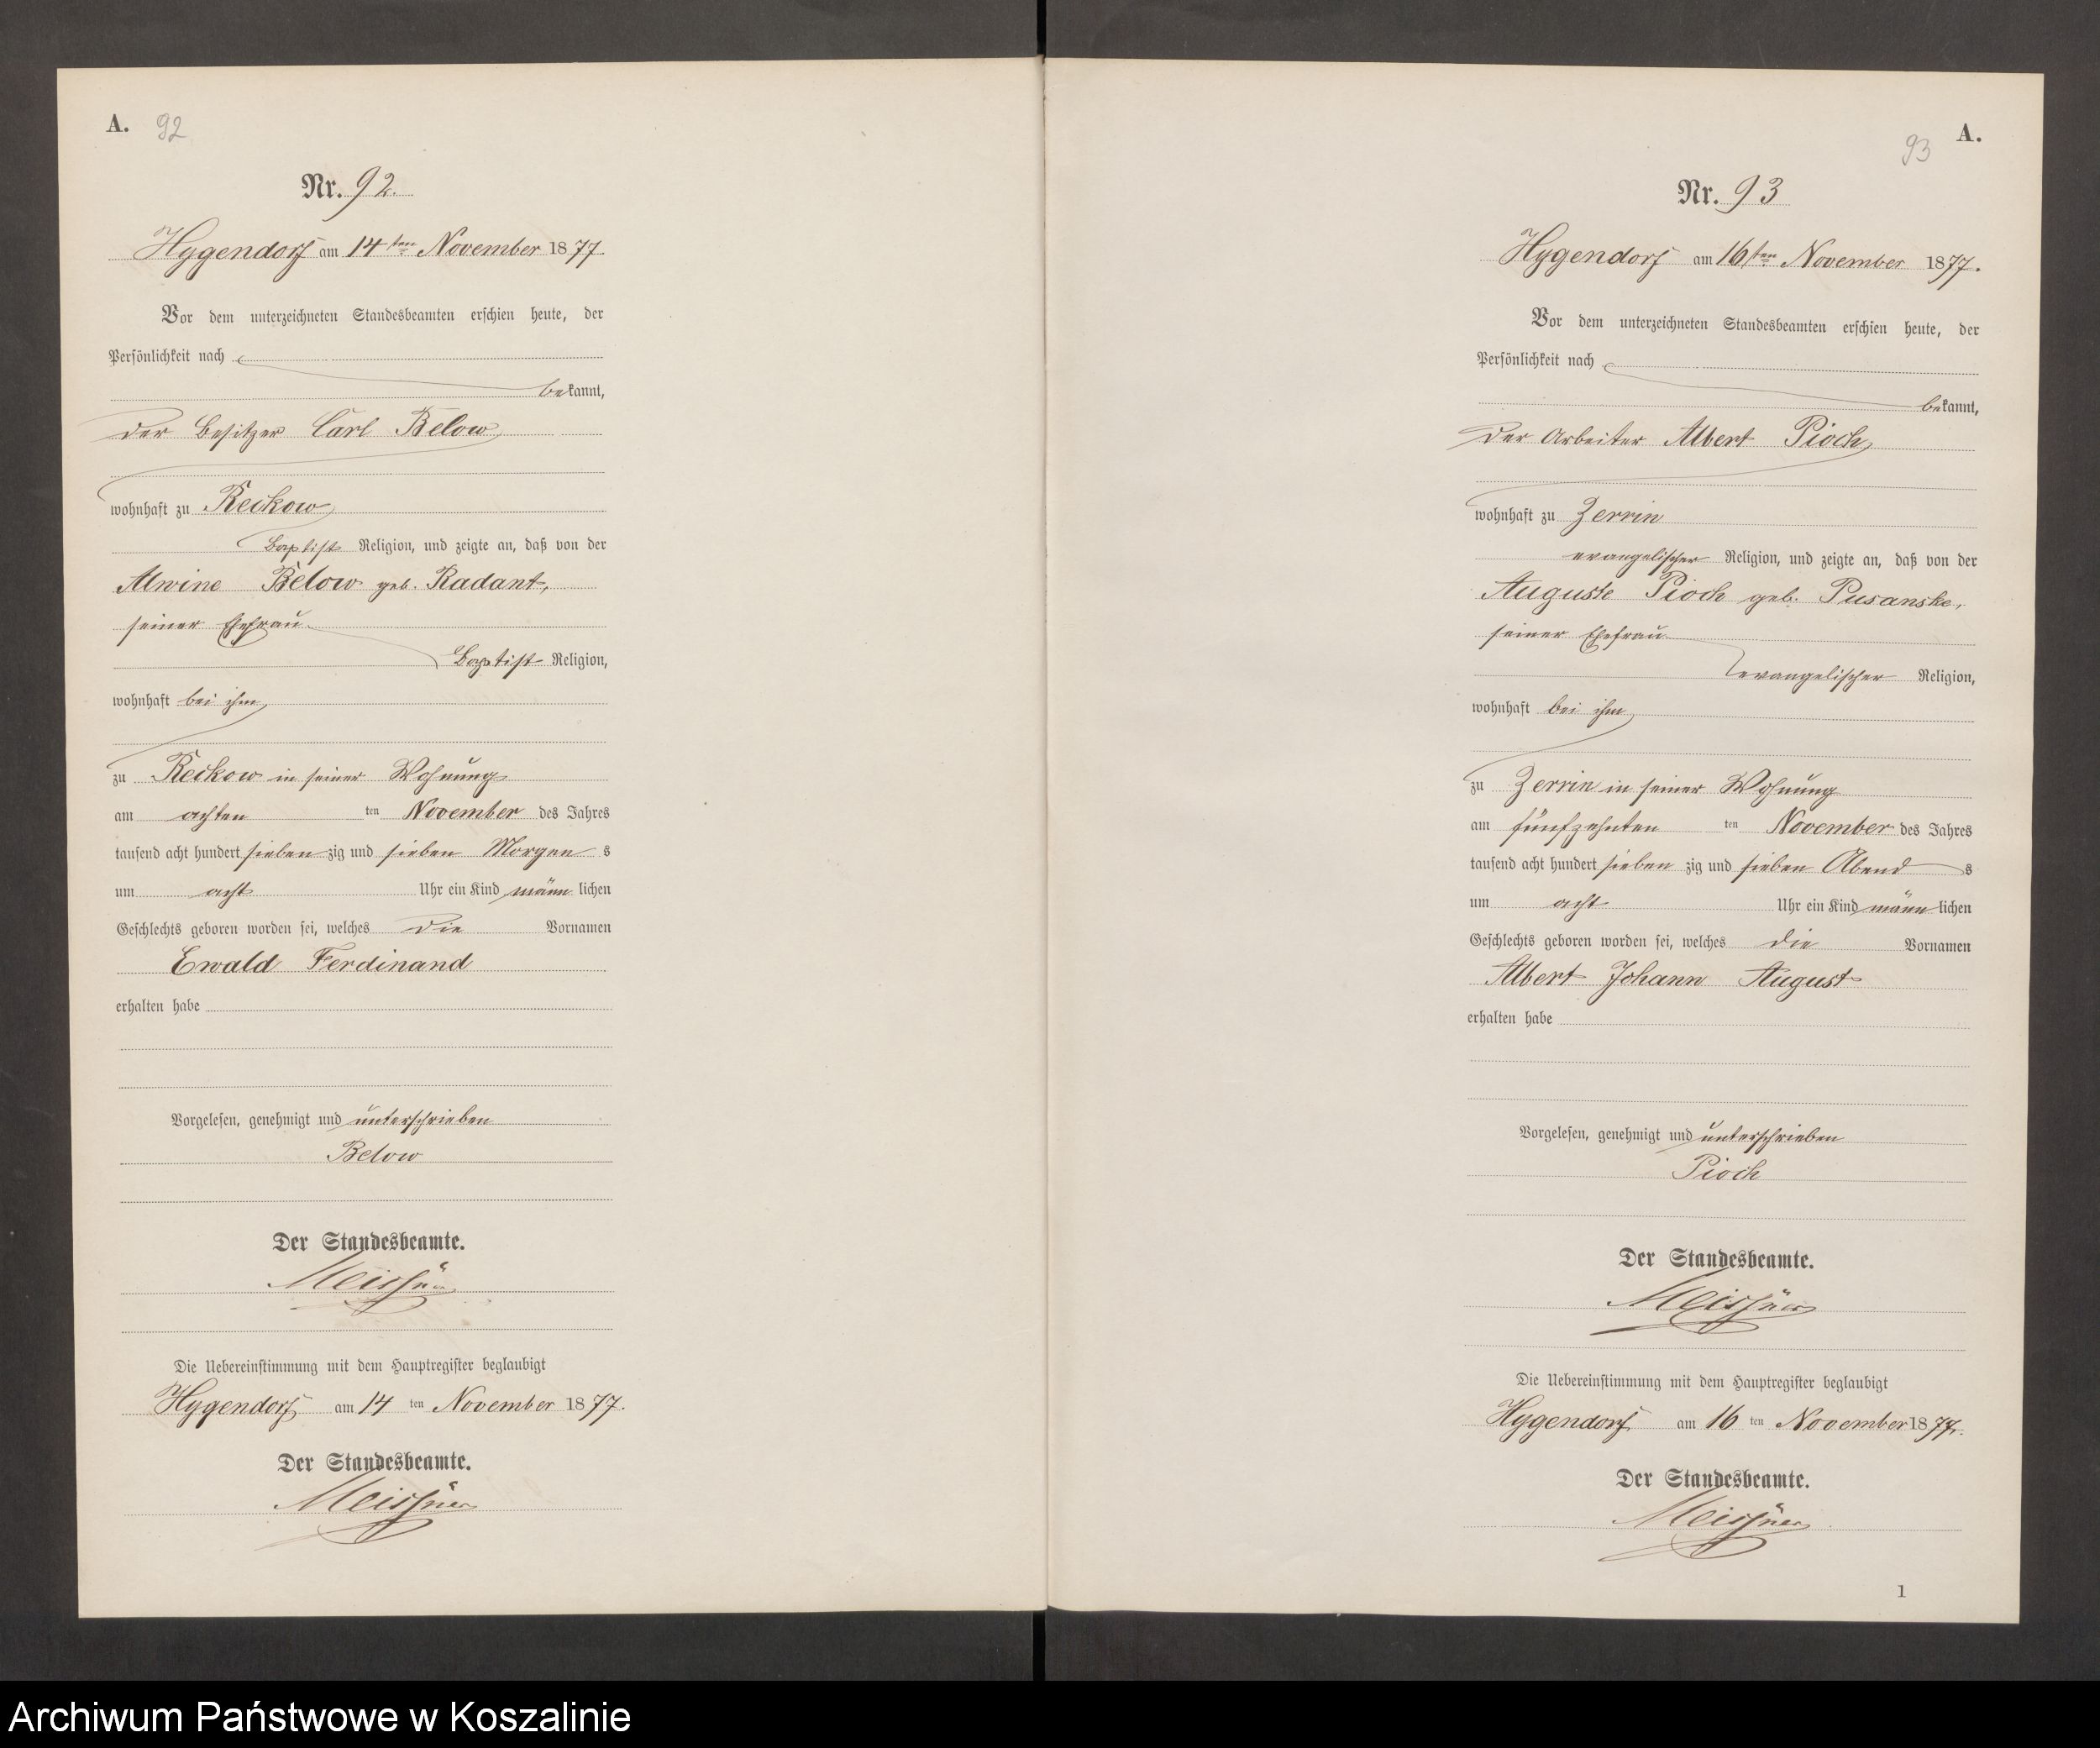 A. 92
Nr. 92.
Hygendorf am 14ten November 1877.
Vor dem unterzeichneten Standesbeamten erschien heute, der
Persönlichkeit nach
bekannt,
der Besitzer Carl Below
wohnhaft zu Reckow
Baptist Religion, und zeigte an, daß von der
Alwine Below geb. Radant,
seiner Ehefrau
Baptist Religion,
wohnhaft bei ihm
zu Reckow in seiner Wohnung
am achten ten November des Jahres
tausend acht hundert siebenzig und sieben Morgens
um acht Uhr ein Kind männlichen
Geschlechts geboren worden sei, welches die Vornamen
Ewald Ferdinand
erhalten habe
Vorgelesen, genehmigt und unterschrieben
Below
Der Standesbeamte.
Meissner
Die Uebereinstimmung mit dem Hauptregister beglaubigt
Hygendorf am 14 ten November 1877.
Der Standesbeamte.
Meissner
93 A.
Nr. 93
Hygendorf am 16ten November 1877.
Vor dem unterzeichneten Standesbeamten erschien heute, der
Persönlichkeit nach
bekannt,
der Arbeiter Albert Pioch
wohnhaft zu Zerrin
evangelischer Religion, und zeigte an, daß von der
Auguste Pioch geb. Pusanske,
seiner Ehefrau
evangelischer Religion,
wohnhaft bei ihm
zu Zerrin in seiner Wohnung
am fünfzehnten ten November des Jahres
tausend acht hundert sieben zig und sieben Abends
um acht Uhr ein Kind männlichen
Geschlechts geboren worden sei, welches die Vornamen
Albert Johann August
erhalten habe
Vorgelesen, genehmigt und unterschrieben
Pioch
Der Standesbeamte.
Meissner
Die Uebereinstimmung mit dem Hauptregister beglaubigt
Hygendorf am 16 ten November 1877.
Der Standesbeamte.
Meissner
1
Archiwum Państwowe w Koszalinie